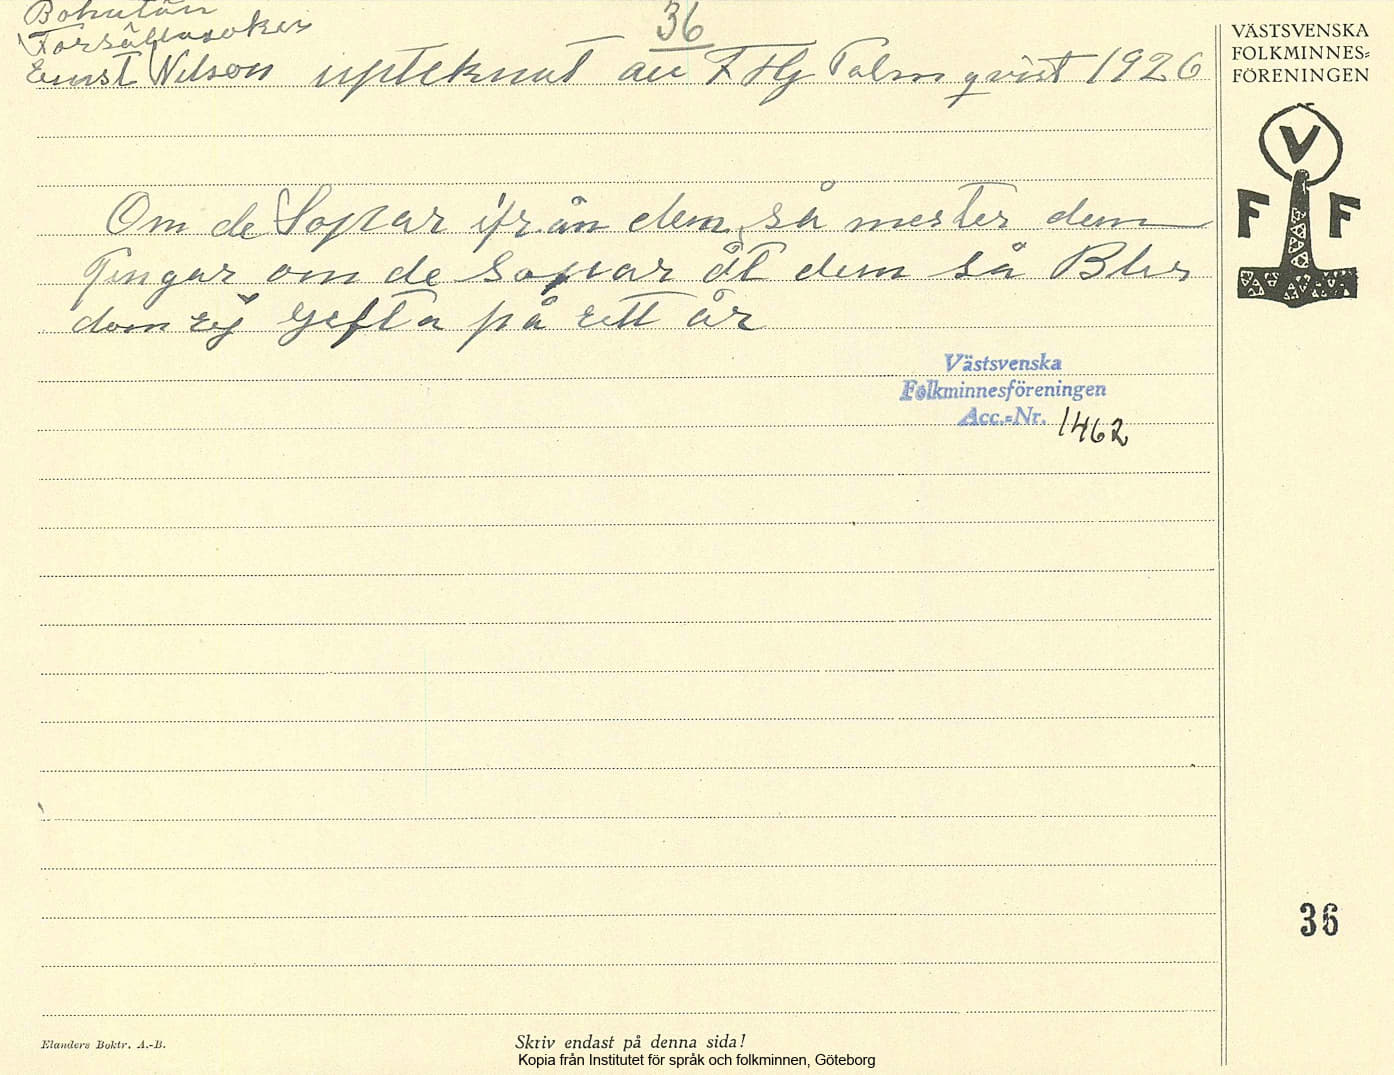 36
Bohuslän
Forsällasoken
Ernst Nilson upteknat av F Hj Palmqvist 1926
Om de Sopar ifrån dem, så mester dem
Pengar om de Sopar åt dem så Blir
dom ej Gefta på ett år
Västsvenska
Folkminnesföreningen
Acc.-Nr. 1462
VÄSTSVENSKA
FOLKMINNES=
FÖRENINGEN
V
F F
36
Elanders Boktr. A.-B.
Skriv endast på denna sida!
Kopia från Institutet för språk och folkminnen, Göteborg